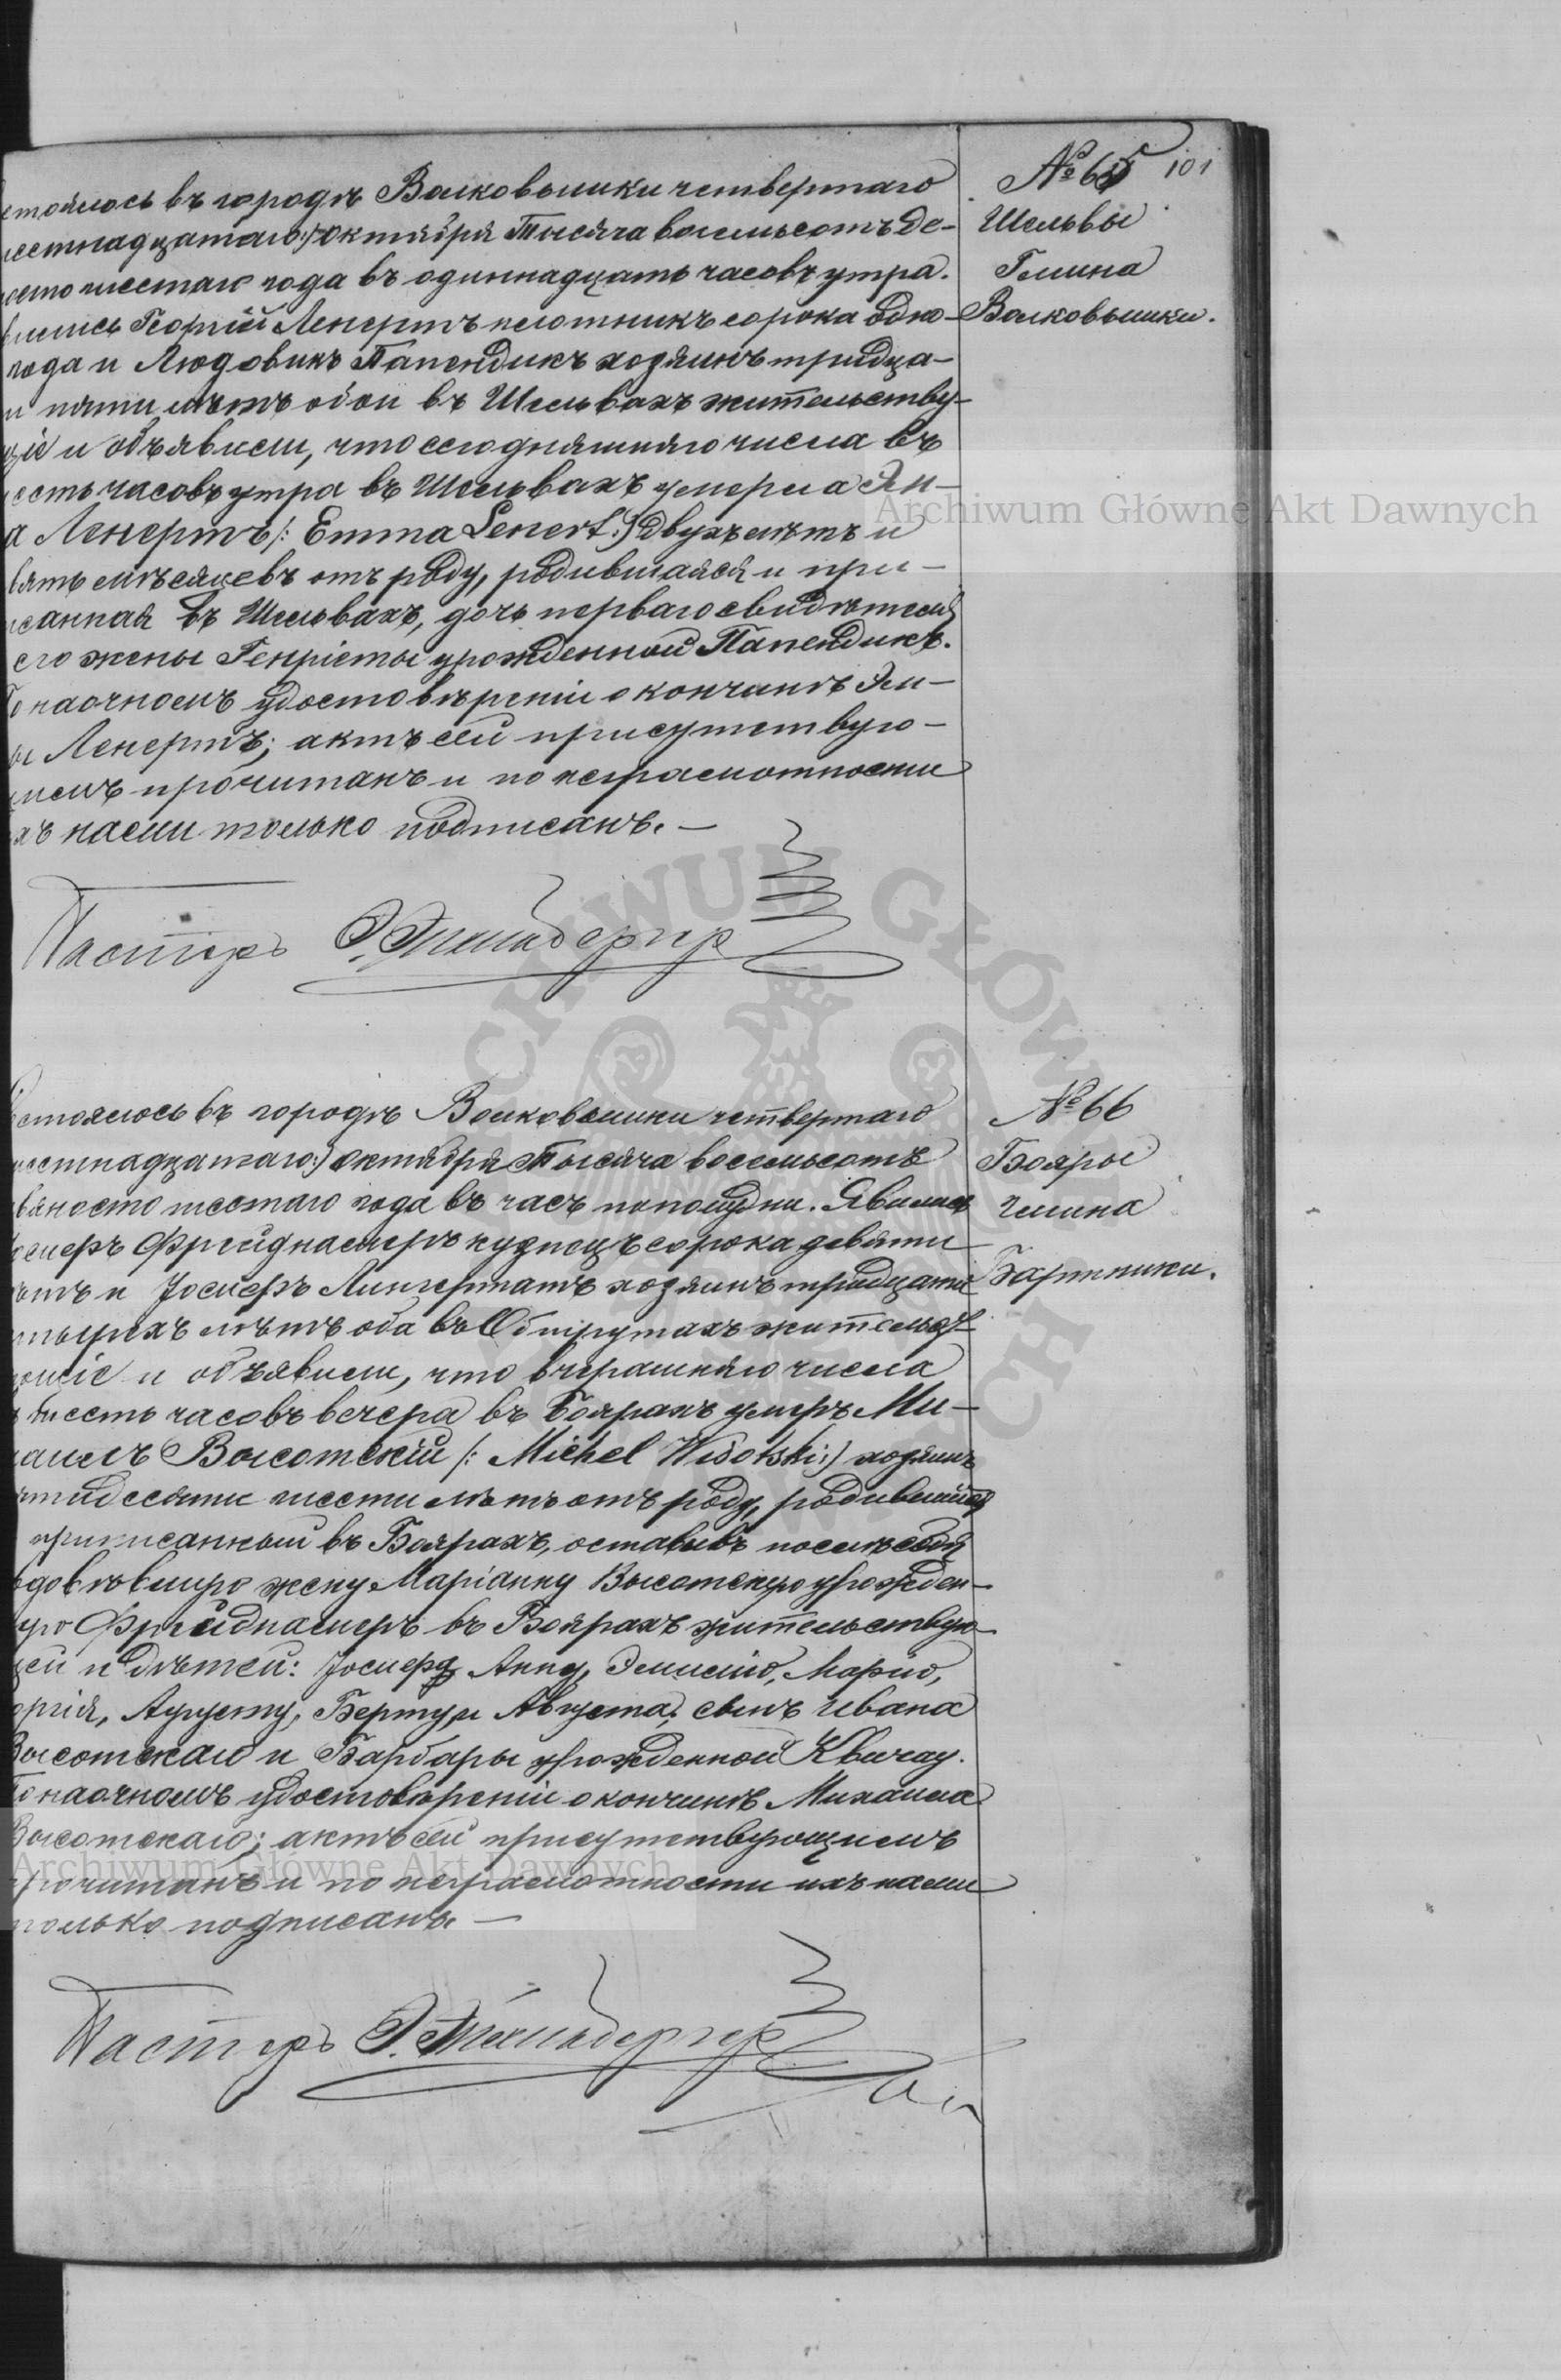 № 65 101
Шельвы
Гмина
Волковышки.
стоялось въ городѣ Волковышки четвертаго
шестнадцатаго:/ Октября Тысяча восемьсотъ де-
носто шестаго года въ одиннадцать часовъ утра.
вились Георгій Ленертъ плотникъ сорока одно-
года и Людовикъ Папендикъ хозяинъ тридца-
и пяти лѣтъ обои въ Шельвахъ жительству-
щіе и объявили, что сегодняшняго числа въ
шесть часовъ утра въ Шельвахъ умерла Эм-
а Ленертъ /: Emma Lenert :/ двухъ лѣтъ и
вять мѣсяцевъ отъ роду, родившаяся и при-
исанная въ Шельвахъ, дочь перваго свидѣтеля
его жены Генріеты урожденной Папендикъ.
По наочномъ удостовѣреніи о кончинѣ Эм-
ы Ленертъ; актъ сей присутствую-
щимъ прочитанъ и по неграмотности
ихъ нами только подписанъ. —
Пасторъ
№ 66
Бояры
гмина
Бартники.
Состоялось въ городѣ Волковышки четвертаго
шестнадцатаго:/ Октября Тысяча восемьсотъ
вяносто шестаго года въ часъ пополудни. Явились
Фрейднамеръ кузнецъ сорока девяти
лѣтъ и Іосифъ Лингертатъ хозяинъ тридцати
тырехъ лѣтъ оба въ Обшрутахъ жительств-
ующіе и объявили, что вчерашняго числа
въ шесть часовъ вечера въ Боярахъ умеръ Ми-
хаилъ Высотскій /: Michel Wisotski :/ хозяинъ
ятидесяти шести лѣтъ отъ роду, родившійся
приписанный въ Боярахъ, оставивъ послѣ себя
вдовѣвшую жену Маріанну Высотскую урожден-
ную Фрейднамеръ въ Боярахъ жительствую-
щей и дѣтей: Іосифа, Анну, Эмилію, Марію,
оргія, Аугусту, Берту и Августа; сынъ Ивана
Высотскаго и Барбары урожденной Квичау.
По наочномъ удостовѣреніи о кончинѣ Михаила
Высотскаго; актъ сей присутствующимъ
прочитанъ и по неграмотности ихъ нами
только подписанъ. —
Пасторъ
Archiwum Główne Akt Dawnych
Archiwum Główne Akt Dawnych